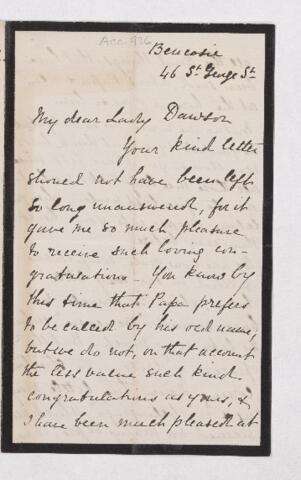 Acc. 976
Bencosie
46 St. George St.
My dear Lady Dawson
Your kind letter
should not have been left
so long unanswered, for it
gave me so much pleasure
to receive such loving con-
gratulations - You know by
this time that Papa prefers
to be called by his old name,
but we do not, on that account
the less value such kind
congratulations as yours, &
I have been much pleased at